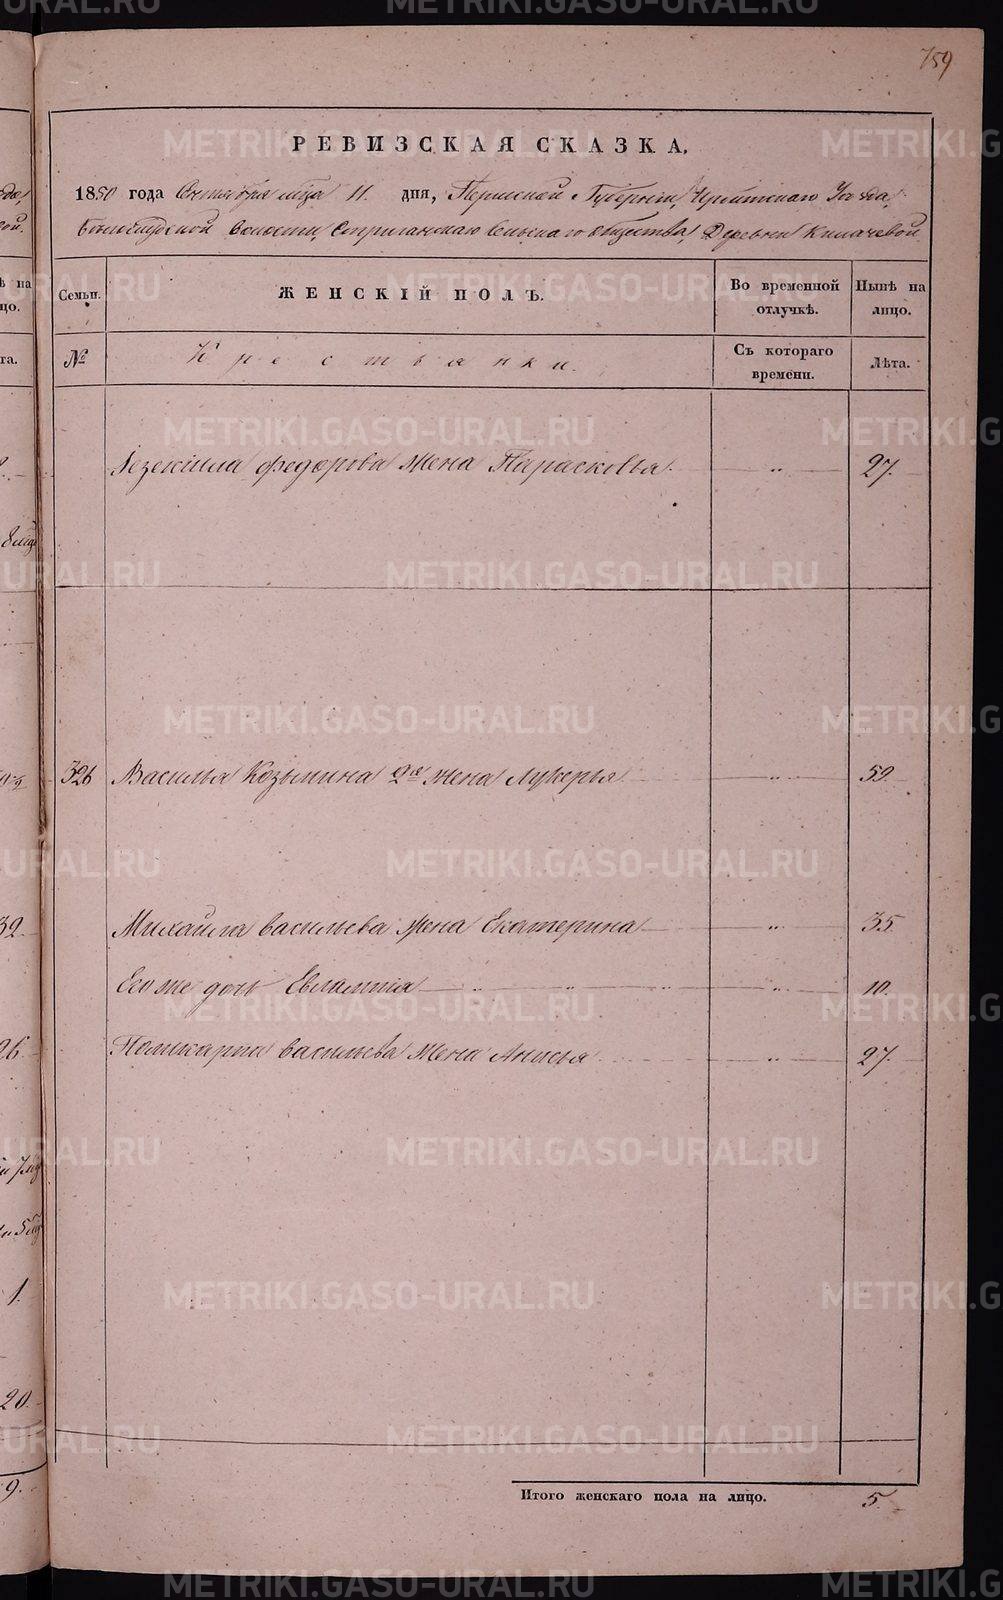 759
РЕВИЗСКАЯ СКАЗКА.
1850 года Октября м̃ца 11. дня, Пермской Губерніи, Ирбитскаго Уѣзда,
Бѣлослудской волости, Стриганскаго Сельскаго общества, Деревни Килачевой
Семьи. ЖЕНСКІЙ ПОЛЪ. Во временной отлучкѣ. Нынѣ на лицо.
№ Крестьянки. Съ котораго времени. Лѣта.
Іезекіила Федорова жена Парасковья. „ 27.
326 Василья Козьмина 2ая жена Лукерья „ 59
Михайла васильева жена Екатерина „ 35.
Его же дочь Евлампія „ „ „ „ 10.
Поликарпа васильева жена Анисья „ 27.
Итого женскаго пола на лицо. 5.